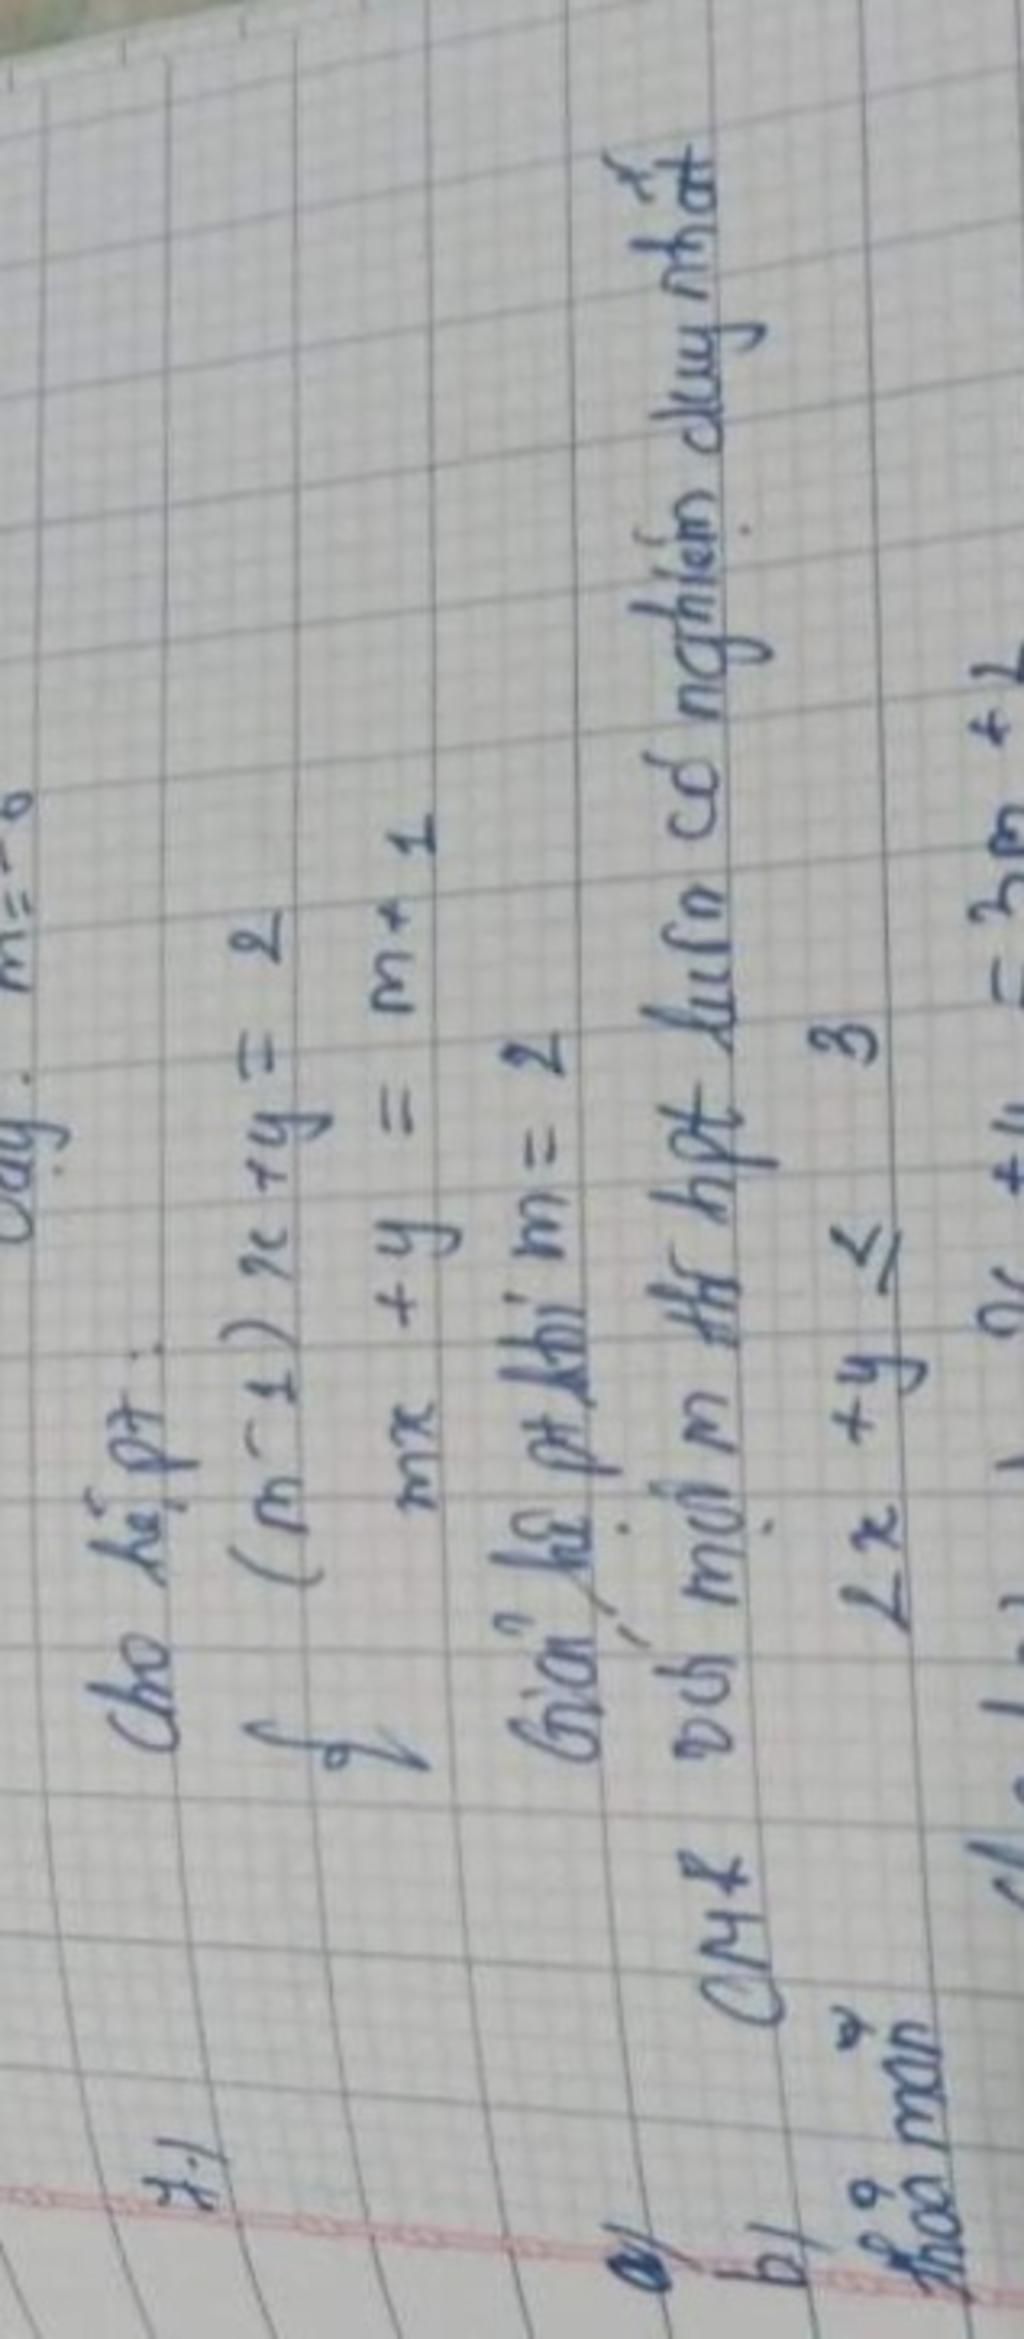 Vậy m = -
7./ Cho hệ pt:
{ (m-1)x + y = 2
mx + y = m + 1
a/ Giải hệ pt khi m = 2
b/ CMR với mọi m thì hpt luôn có nghiệm duy nhất
thoả mãn 2x + y ≤ 3
x + y = 3m +